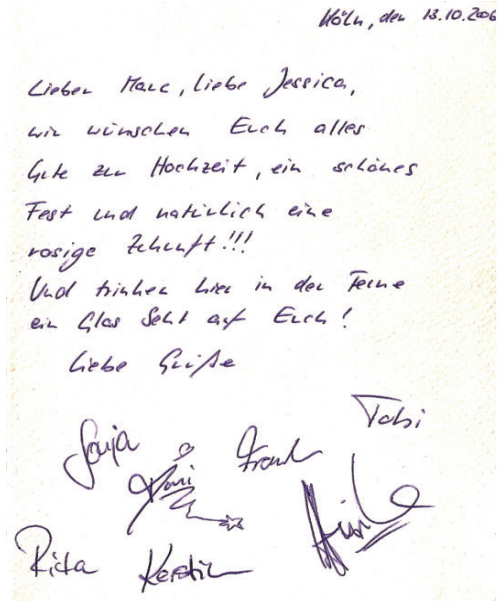 Köln, den 13.10.2006
Lieber Marc, liebe Jessica,
wir wünschen Euch alles
Gute zur Hochzeit, ein schönes
Fest und natürlich eine
rosige Zukunft!!!
Und trinken hier in der Ferne
ein Glas Sekt auf Euch!
Liebe Grüße
Tobi
Sonja
Frank
Rita Kerstin